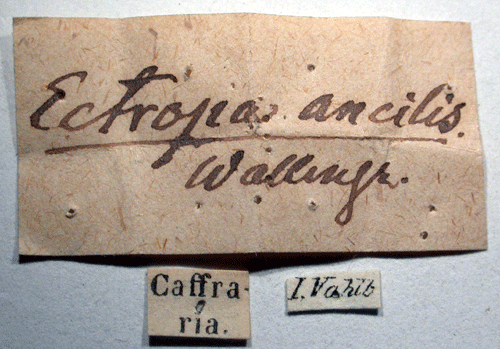 Ectropa ancilis.
Wallengr.
Caffra-
ria.
I. Vahlb